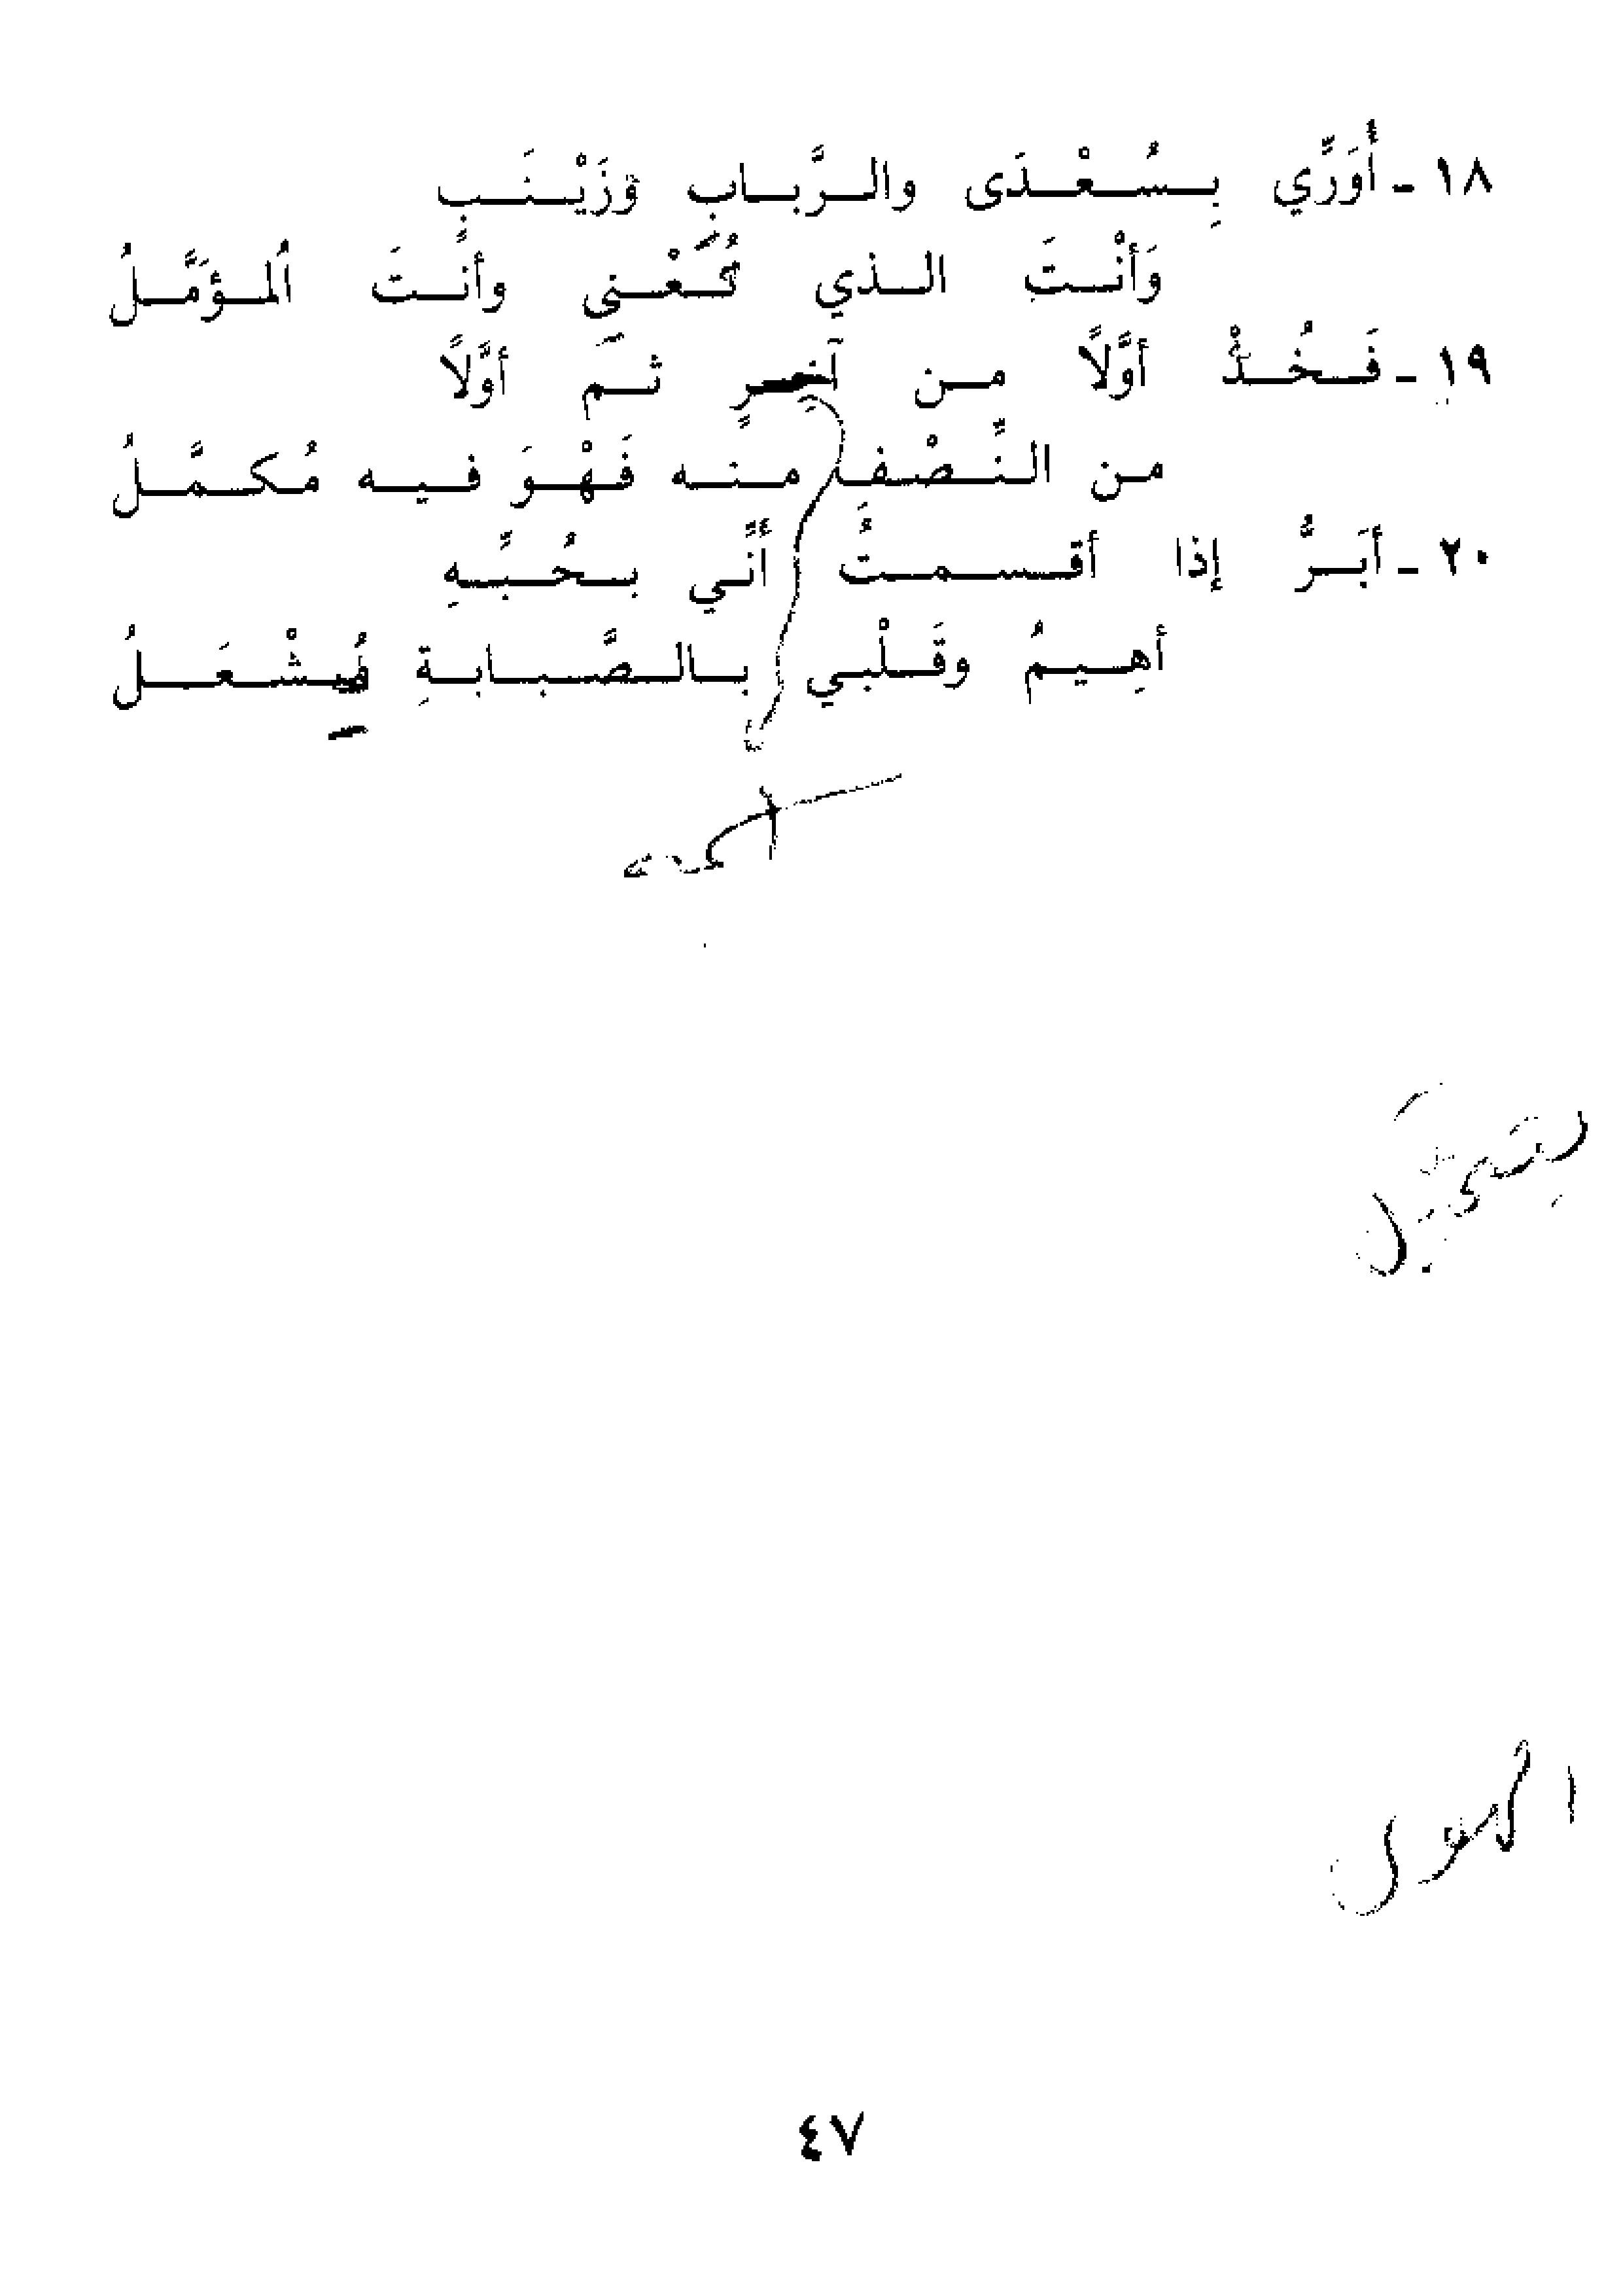 ١٨ - أُوَرِّي بِسُعْدَى والرَّبابِ وَزَيْنَبٍ
وَأنْتَ الذي تُعْنى وأنتَ المؤمَّلُ
١٩ - فَخُذْ أوَّلًا من آخِرٍ ثم أوَّلًا
من النِّصْفِ منه فَهْوَ فيه مُكمَّلُ
٢٠ - أبَرُّ إذا أقسمتُ أنّي بحُبِّهِ
أهِيمُ وقَلْبي بالصَّبابةِ مُشْعَلُ
٤٧